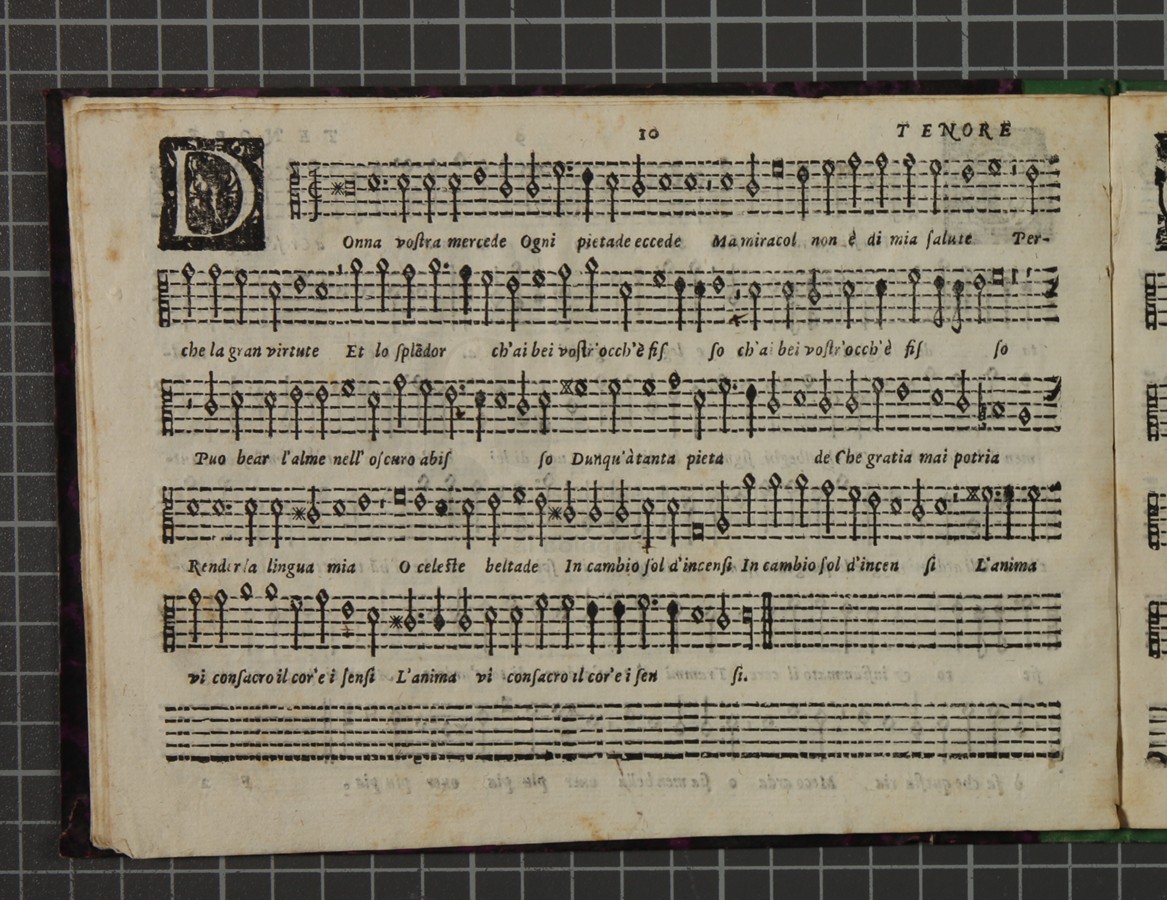 10 TENORE
DOnna voſtra mercede Ogni pietade eccede Ma miracol non è di mia ſalute Per-
che la gran virtute Et lo ſplẽdor ch'ai bei voſtr'occh'è fiſ ſo ch'ai bei voſtr'occh'è fiſ ſo
Puo bear l'alme nell' oſcuro abiſ ſo Dunqu'à tanta pieta de Che gratia mai potria
Render la lingua mia O celeſte beltade In cambio ſol d'incenſi In cambio ſol d'incen ſi L'anima
vi conſacro il cor'e i ſenſi L'anima vi conſacro il cor'e i ſen ſi.